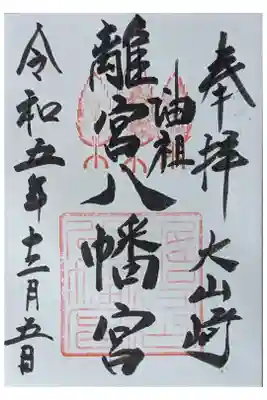 奉拝
大山崎
油祖
離宮八幡宮
令和五年十二月五日